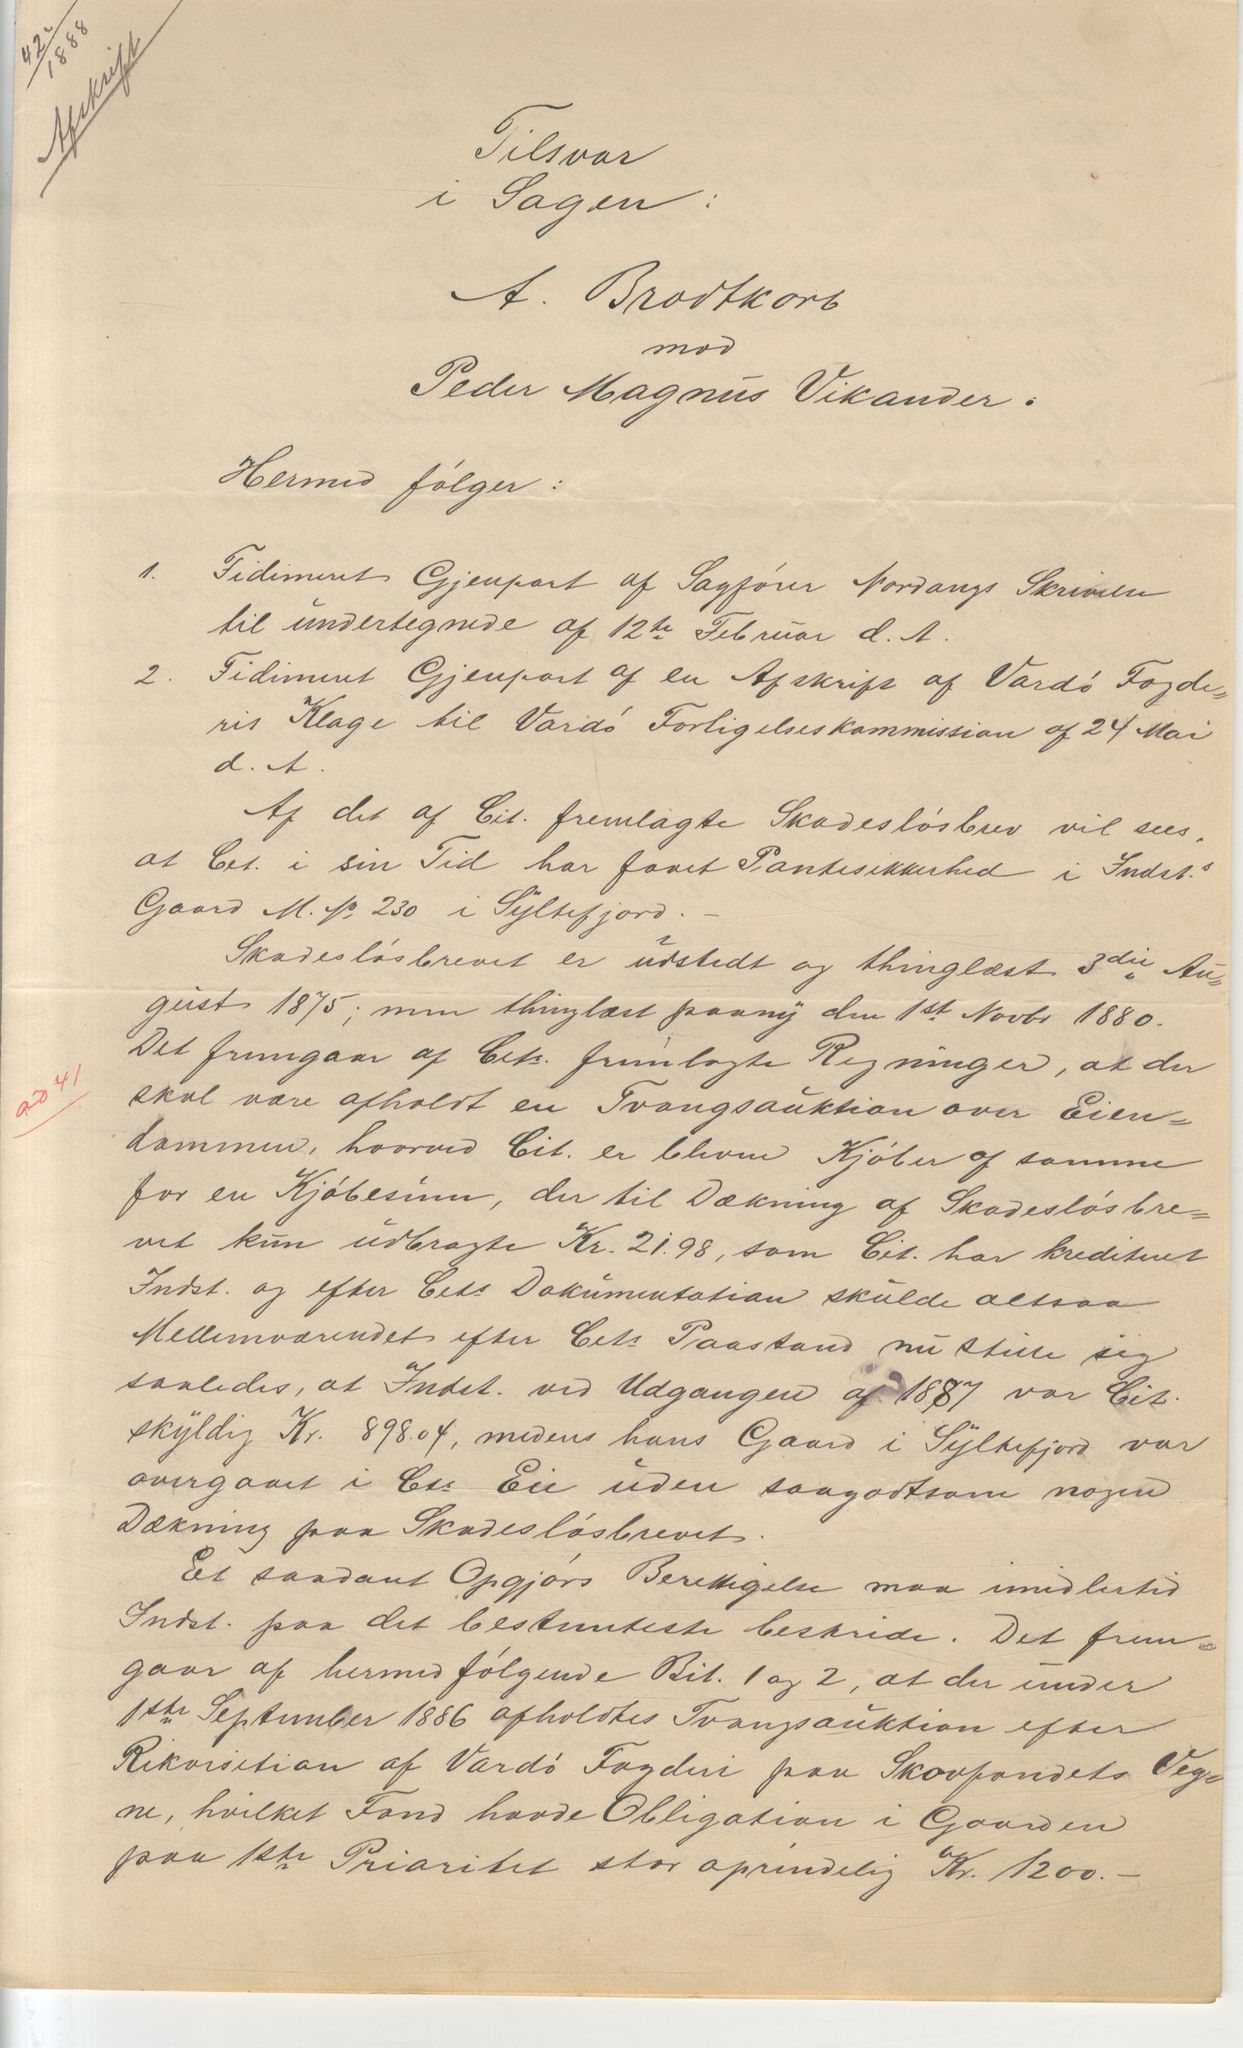 42/1888
Afskrift
Tilsvar
i Sagen:
A. Brodtkorb
mod
Peder Magnus Vikander.
Hermed følger:
1. Fidimeret Gjenpart af Sagfører Nordangs Skrivelse
til undertegnede af 12te Februar d. A.
2. Fidimeret Gjenpart af en Afskrift af Vardø Fogde=
ris Klage til Vardø Forligelseskommission af 24 Mai
d. A.
Af det af Cit. fremlagte Skadesløsbrev vil sees,
at Cit. i sin Tid har faaet Pantesikkerhed i Indst.s
Gaard M. No 230 i Syltefjord. —
Skadesløsbrevet er udstedt og thinglæst 3die Au=
gust 1875; men thinglæst paany den 1st Novbr 1880.
Det fremgaar af Cits. fremlagte Regninger, at der
ad 41
skal være afholdt en Tvangsauktion over Eien=
dommen, hvorved Cit. er bleven Kjøber af samme
for en Kjøbesum, der til Dækning af Skadesløsbre=
vet kun udbragte Kr. 21.98, som Cit. har krediteret
Indst. og efter Cits Dokumentation skulde altsaa
Mellemværendet efter Cits Paastand nu stille sig
saaledes, at Indst. ved Udgangen af 1887 var Cit.
skyldig Kr. 898.04, medens hans Gaard i Syltefjord var
overgaaet i Cits Eie uden saagodtsom nogen
Dækning paa Skadesløsbrevet.
Et saadant Opgjørs Berettigelse maa imidlertid
Indst. paa det bestemteste bestride. Det frem=
gaar af hermed følgende Bil. 1 og 2, at der under
1ste September 1886 afholdtes Tvangsauktion efter
Rikvisition af Vardø Fogderi paa Skovfondets Veg=
ne, hvilket Fond havde Obligation i Gaarden
paa 1ste Prioritet stor oprindelig Kr. 1200. —